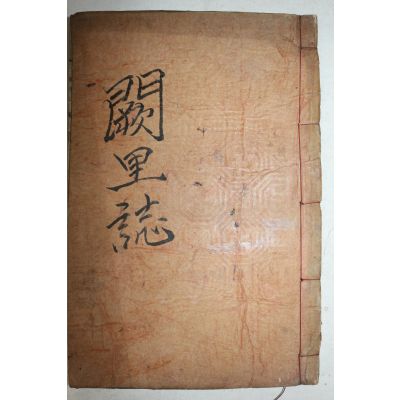 闕里誌